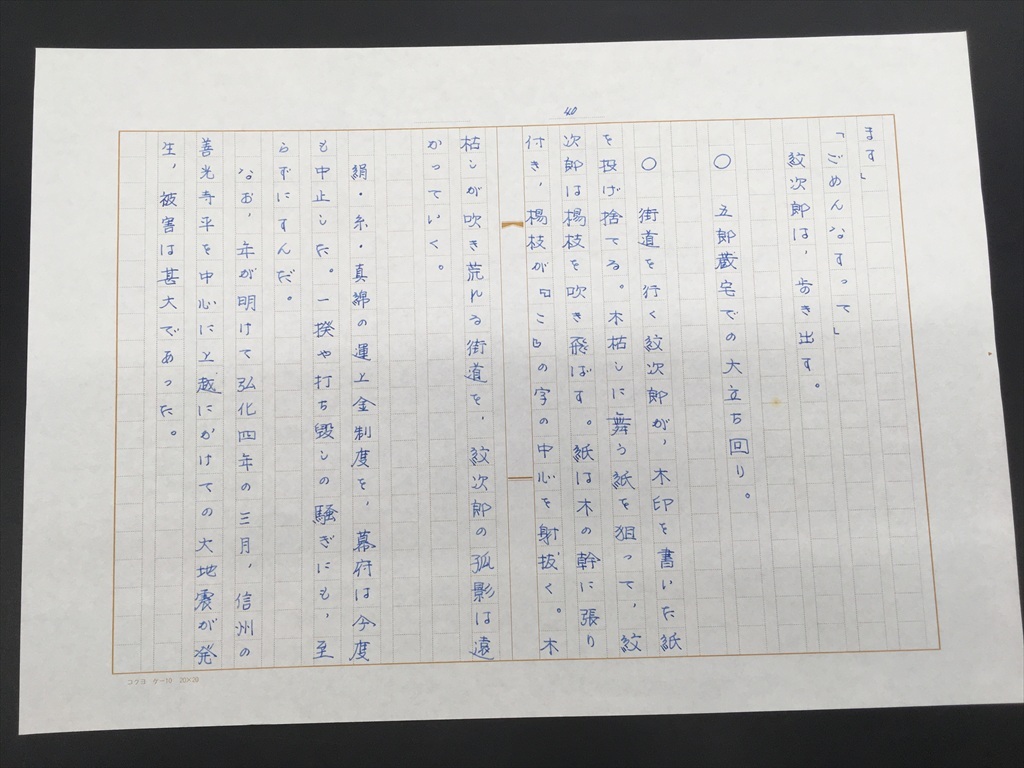 40
ます」
「ごめんなすって」
紋次郎は、歩き出す。
〇 五郎蔵宅での大立ち回り。
〇 街道を行く紋次郎が、木印を書いた紙
を投げ捨てる。木枯しに舞う紙を狙って、紋
次郎は楊枝を吹き飛ばす。紙は木の幹に張り
付き、楊枝が『こ』の字の中心を射抜く。木
枯しが吹き荒れる街道を、紋次郎の孤影は遠
かっていく。
絹・糸・真綿の運上金制度を、幕府は今度
も中止した。一揆や打ち毀しの騒ぎにも、至
らずにすんだ。
なお、年が明けて弘化四年の三月、信州の
善光寺平を中心に上越にかけての大地震が発
生、被害は甚大であった。
コクヨ ケー10 20×20